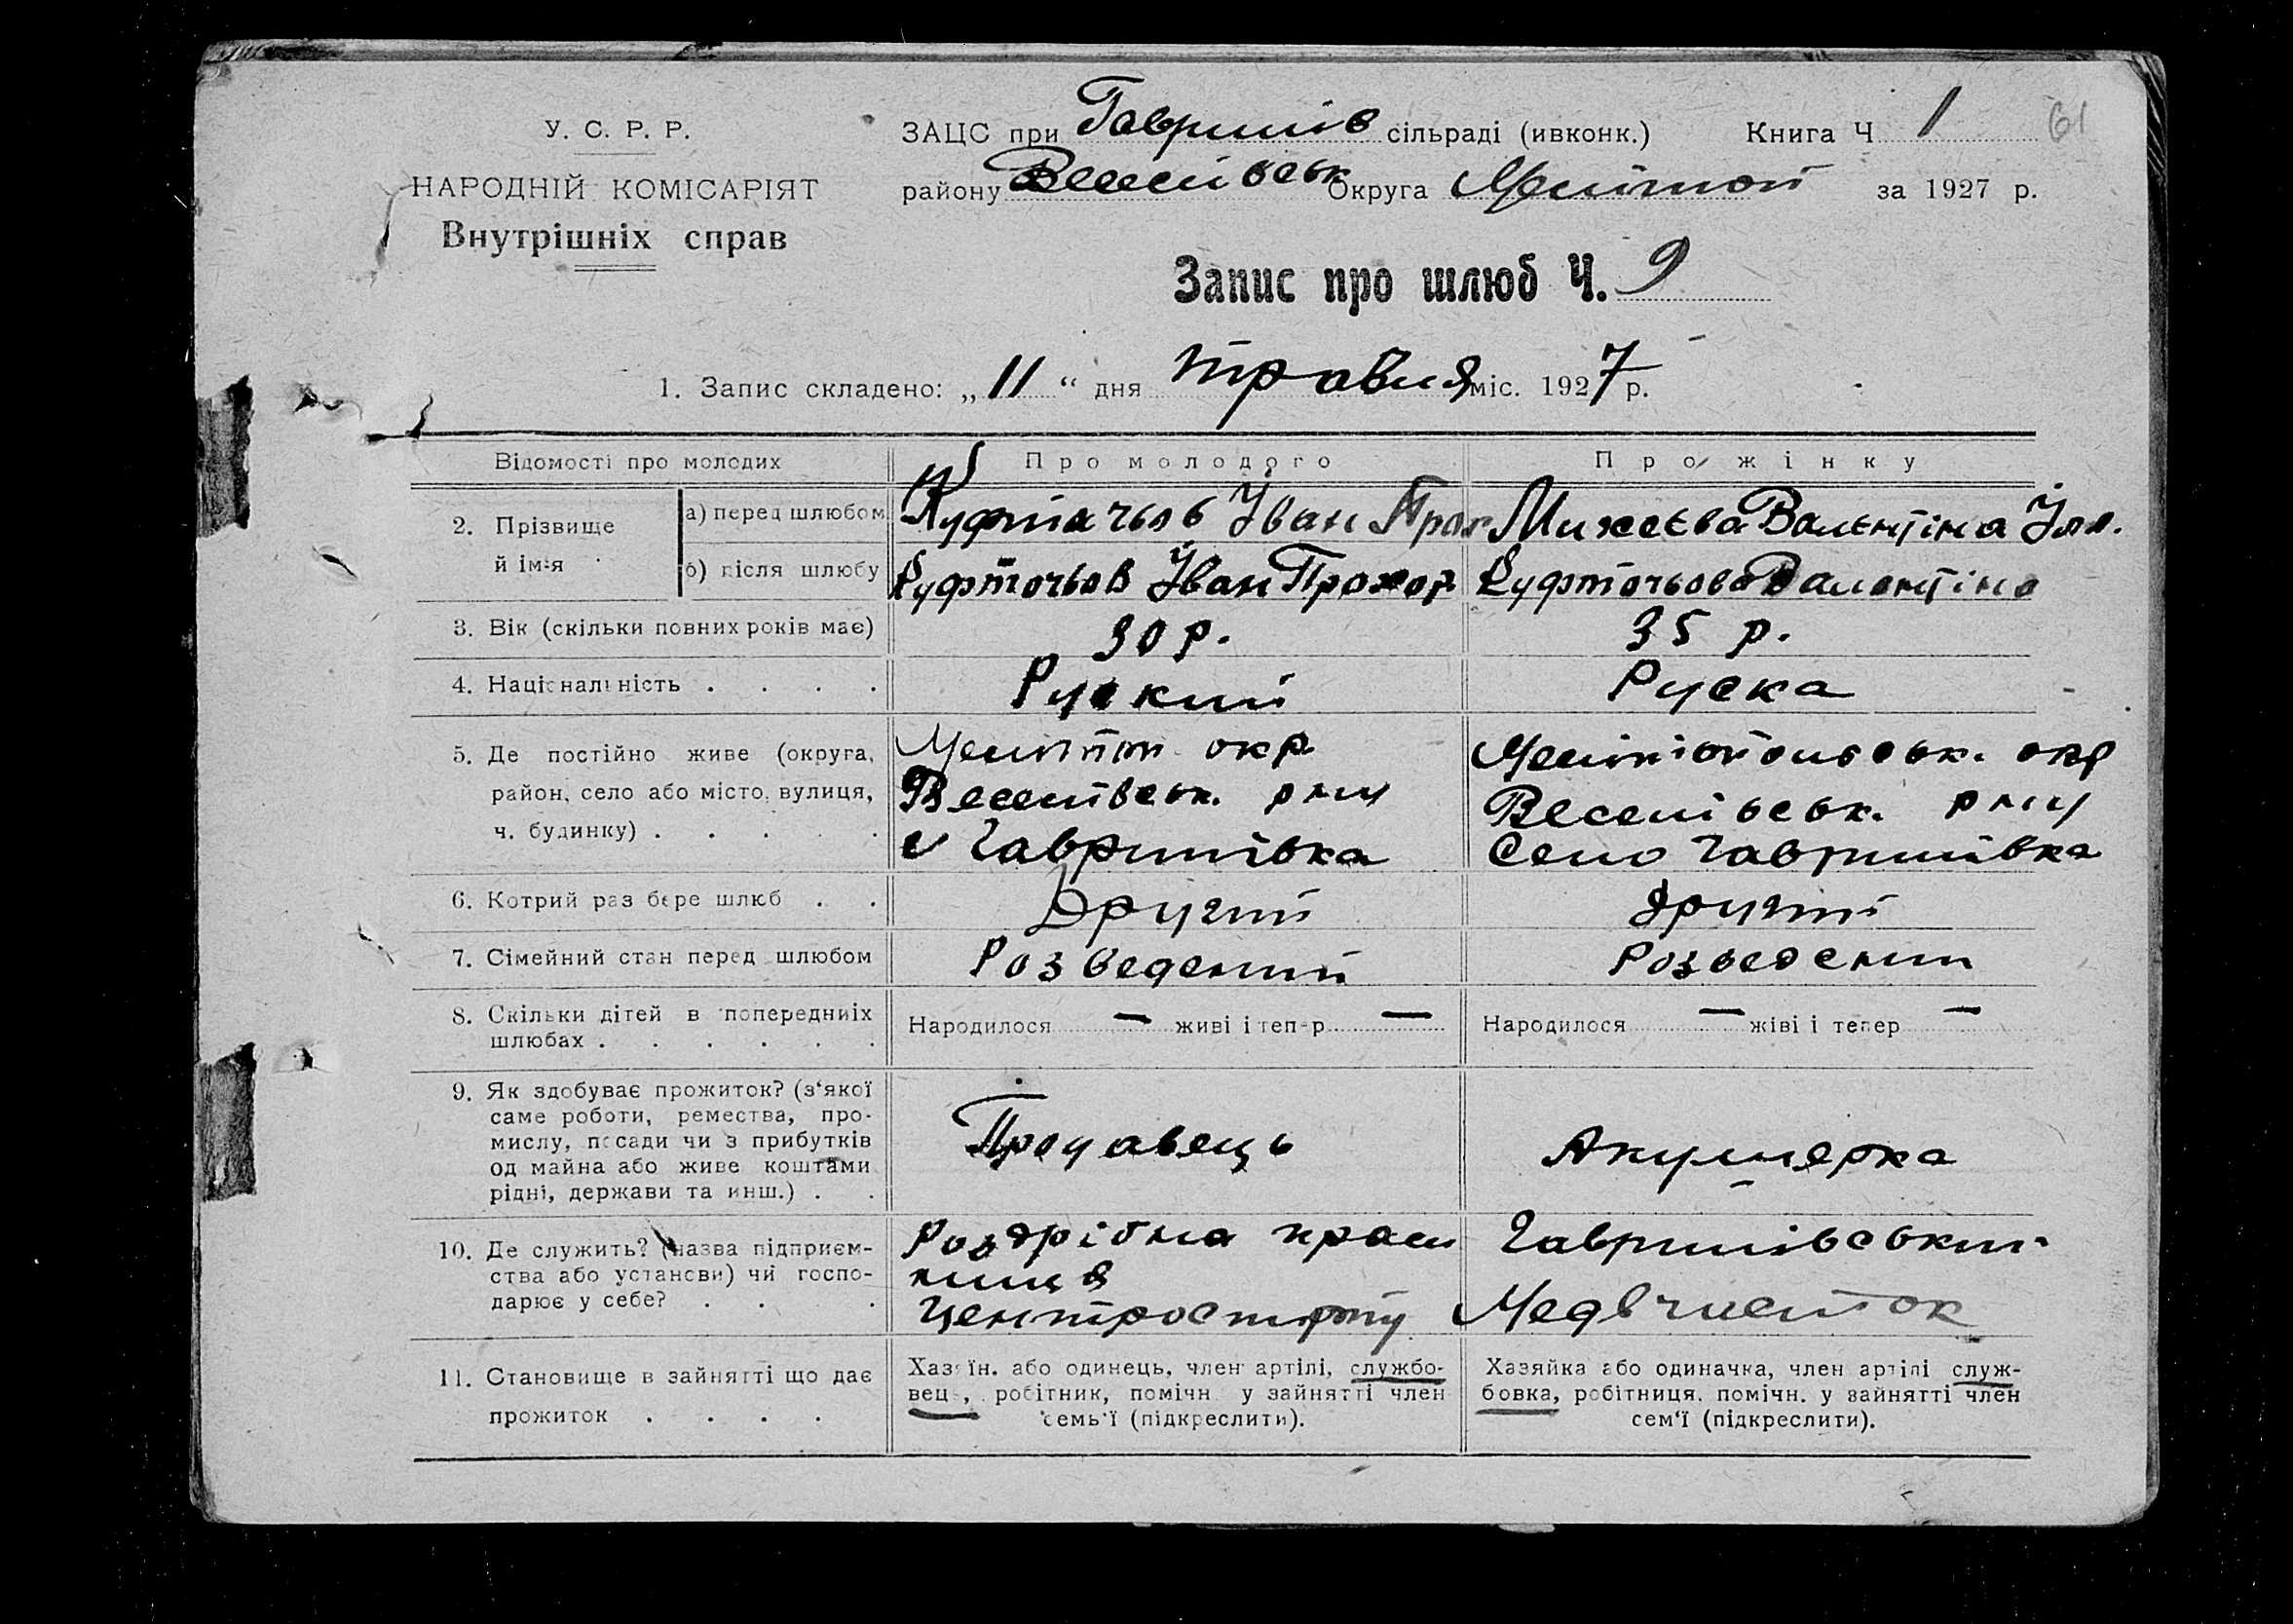 У. С. Р. Р.
НАРОДНІЙ КОМІСАРІЯТ
Внутрішніх справ
ЗАЦС при Гаврилів сільраді (ивконк.) Книга Ч 1 61
району Веселівськ Округа Мелітоп за 1927 р.
Запис про шлюб Ч. 9
1. Запис складено: „ 11 “ дня травня міс. 1927 р.
Відомості про молодих Про молодого Про жінку
2. Прізвище й ім'я
а) перед шлюбом Іван Прох Михеєва Валентіна Ілл.
б) після шлюбу Куфточьов Іван Прохор Куфточьова Валентіна
3. Вік (скільки повних років має) 30 р. 35 р.
4. Національність . . . . Руский Руска
5. Де постійно живе (округа, Меліт окр Мелітопольськ. окр
район, село або місто, вулиця, Веселівськ. рну Веселівськ. рну
ч. будинку) . . . . . с Гаврилівка Село Гаврилівка
6. Котрий раз бере шлюб . . Другий другий
7. Сімейний стан перед шлюбом Розведений Розведений
8. Скільки дітей в попередниіх Народилося — живі і тепер — Народилося — жіві і тепер —
шлюбах . . . . . .
9. Як здобуває прожиток? (з‘якої
саме роботи, ремества, про-
мислу, посади чи з прибутків Продавець Акушерка
од майна або живе коштами
рідні, держави та инш.) . .
10. Де служить? (назва підприєм- Роздрібна крам Гаврилівський
ства або установи) чи госпо- ниця Медвчасток
дарює у себе? . . . Центроспирту
11. Становище в зайнятті що дає Хазяїн. або одинець, член артілі, службо- Хазяйка або одиначка, член артілі служ-
прожиток . . . . вець, робітник, помічн. у зайнятті член бовка, робітниця, помічн. у зайнятті член
семь‘ї (підкреслити). сем‘ї (підкреслити).